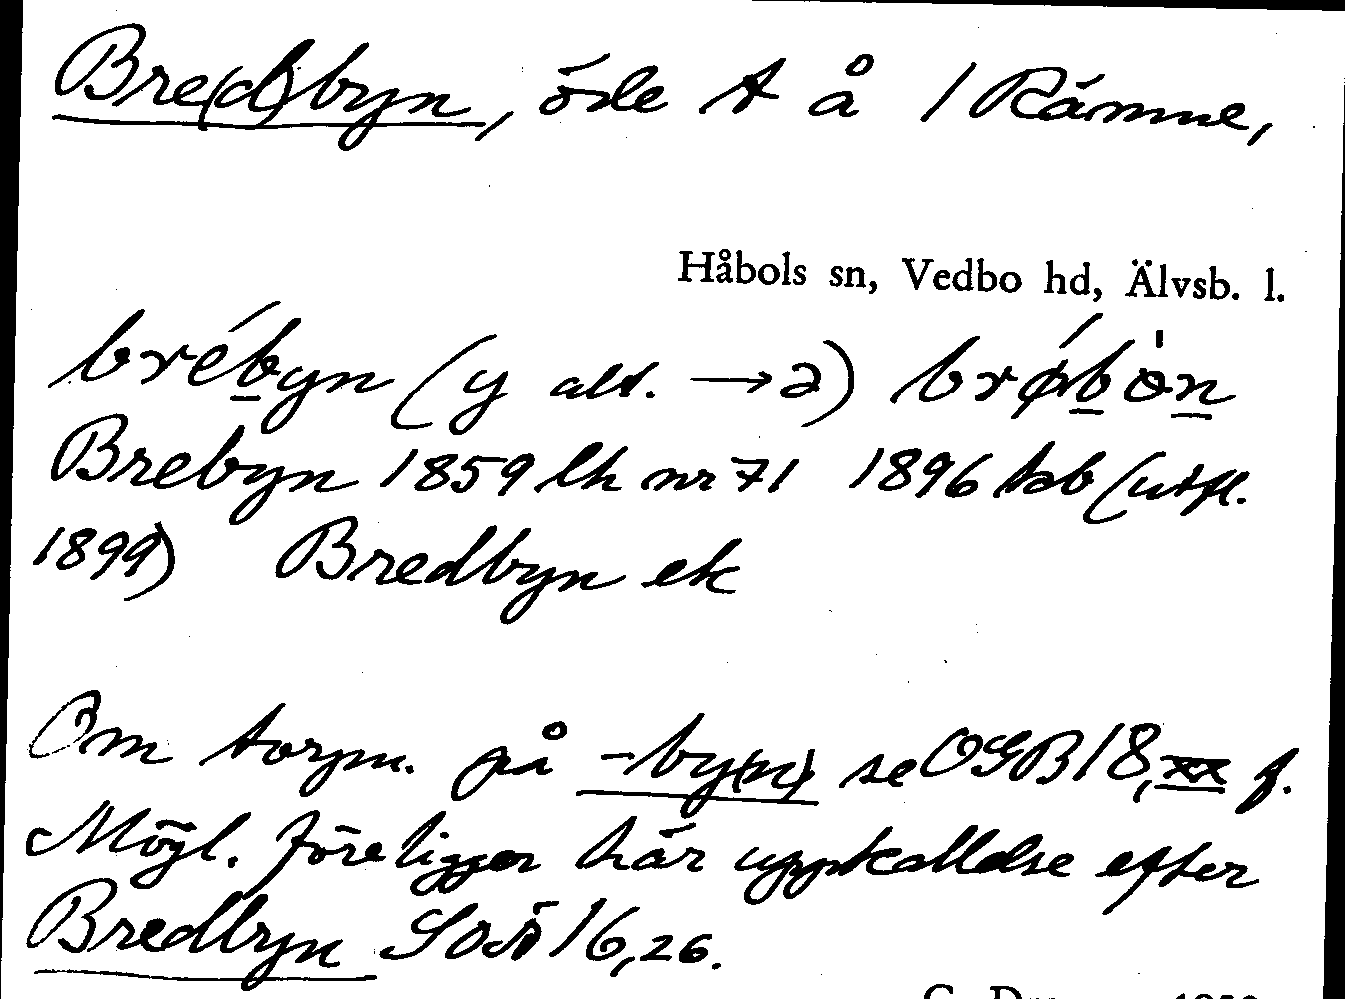 Bre(d)byn, öde t å 1 Rämne,
Håbols sn, Vedbo hd, Älvsb. l.
brébyn (y alt. → ə) brǿbön
Brebyn 1859 lh nr 71 1896 tab (utfl.
1899) Bredbyn ek
Om torpn. på -by(n) se OGB 18, xx f.
Mögl. föreligger här uppkallelse efter
Bredbyn SOÄ 16, 26.